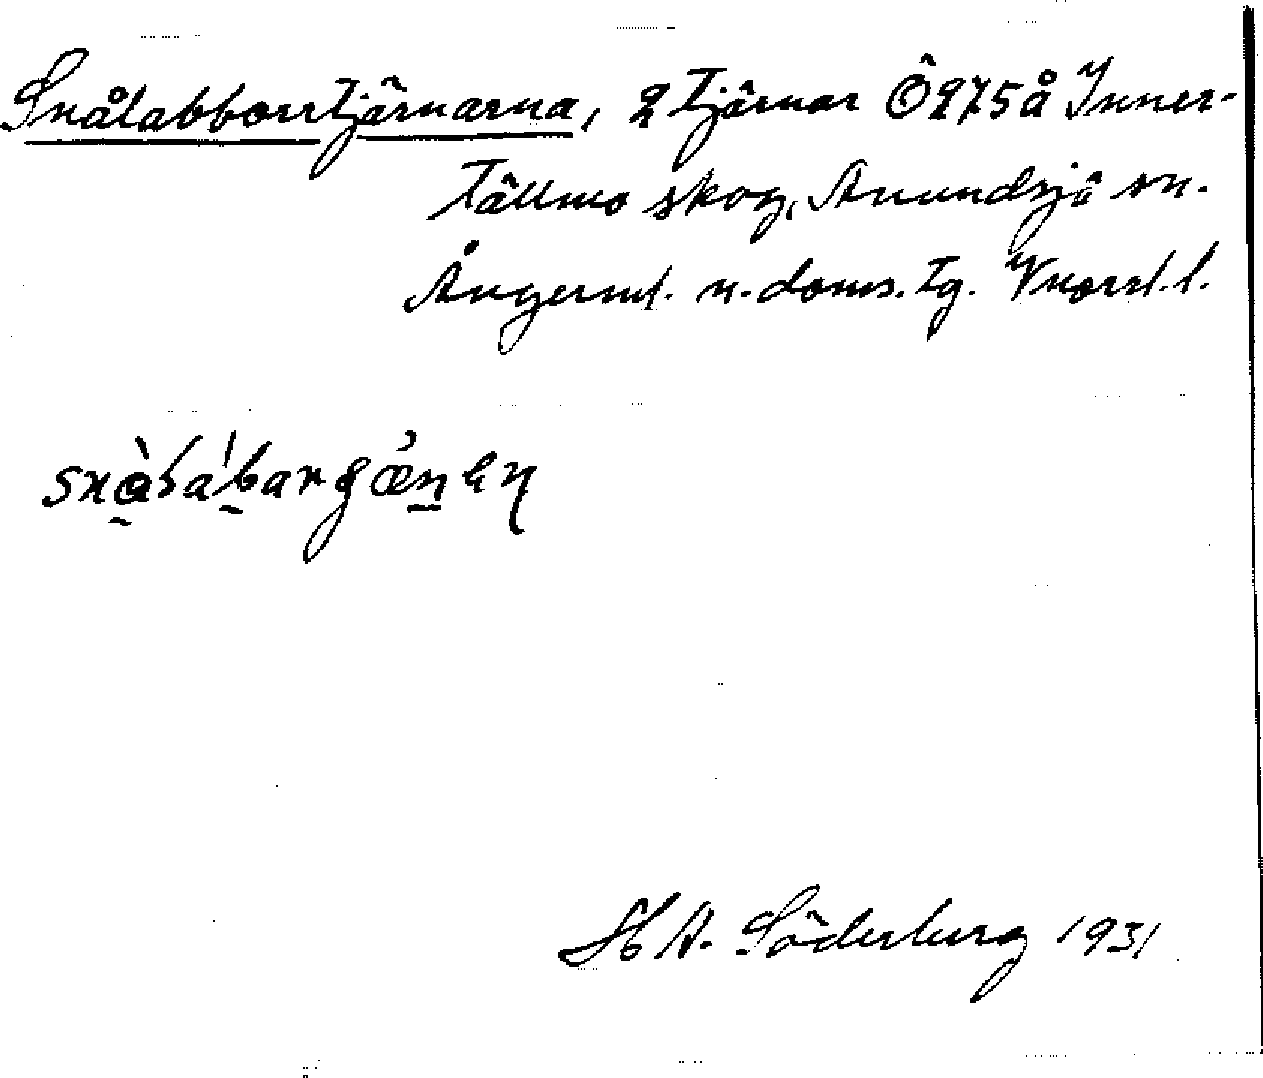 Snålabborrtjärnarna, 2 tjärnar Ö 275 å Inner-
Tällmo skog, Anundsjö sn.
Ångerml. n. doms. tg. Vnorrl. l.
H A. Söderberg 1931